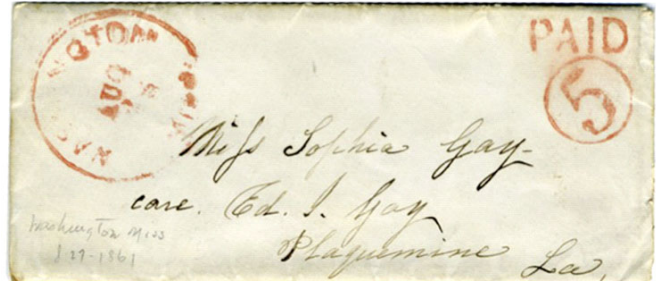 WASHINGTON
AUG
PAID
5
Miss Sophia Gay-
care. Ed. J. Gay
Plaquemine
La,
Washington Miss
27-1861